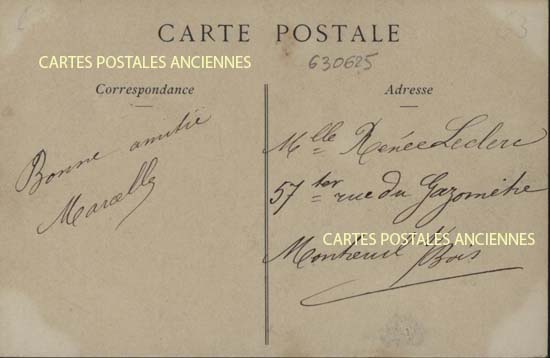 CARTE POSTALE
CARTES POSTALES ANCIENNES
630625
Correspondance
Adresse
Bonne amitié
Marcelle
Mlle Renée Leclerc
57 ter rue du Gazomètre
CARTES POSTALES ANCIENNES
Montreuil s/ Bois